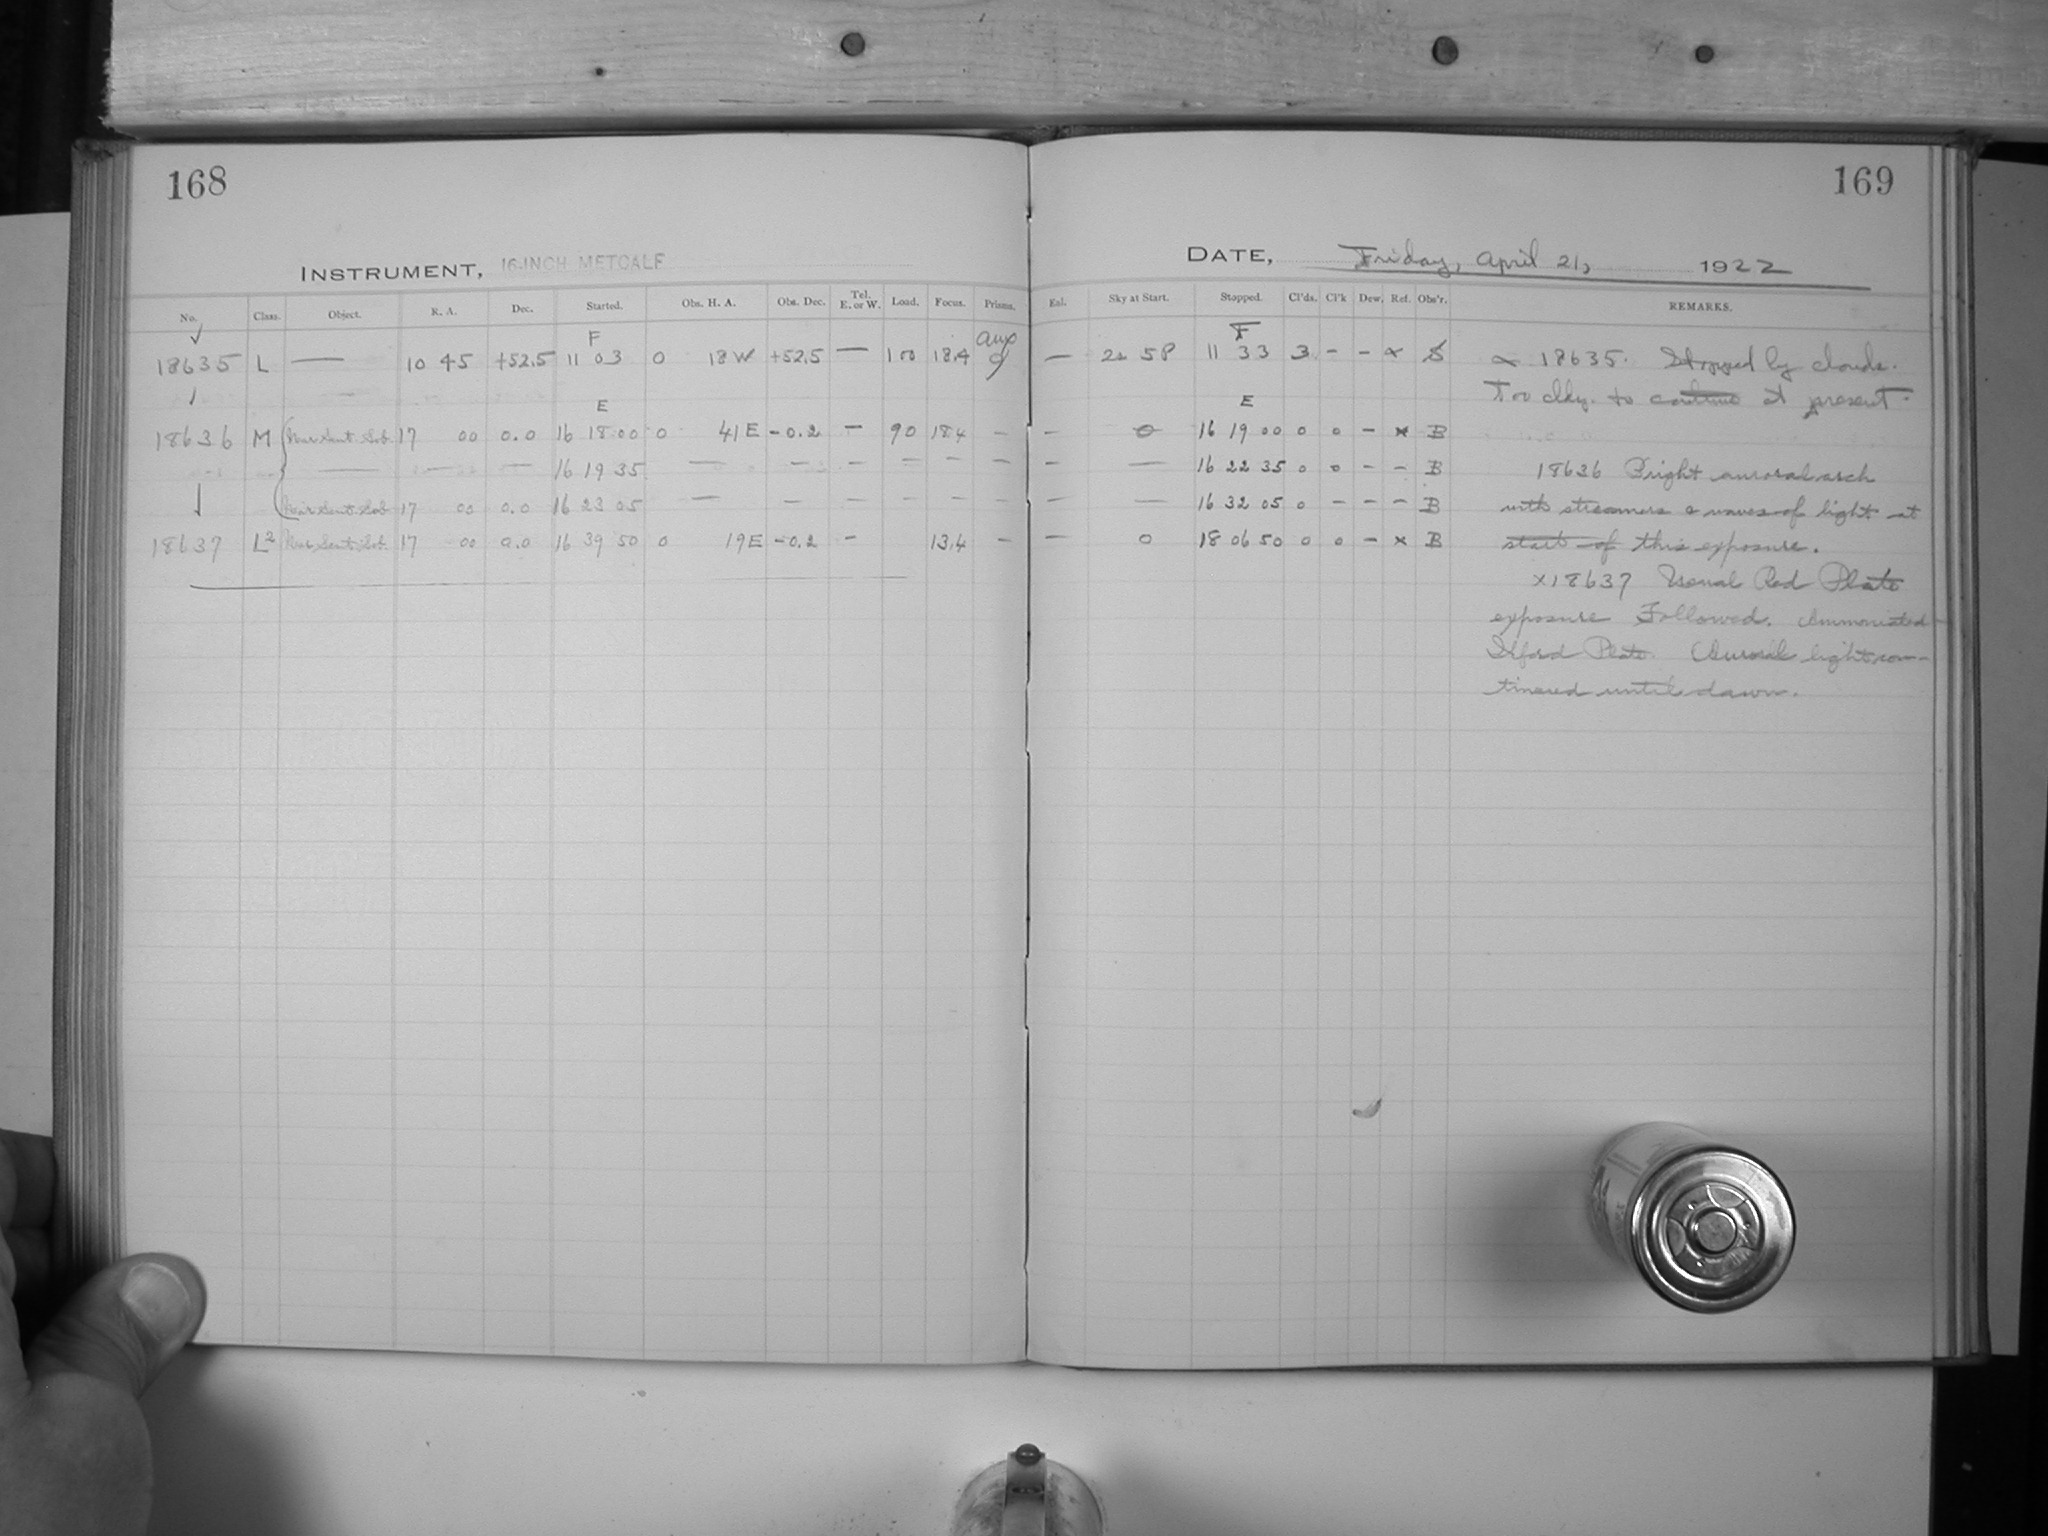 168
169
INSTRUMENT, 16-INCH METCALF
DATE, Friday, April 21, 1922
No. Class. Object. R. A. Dec. Started. Obs. H. A. Obs. Dec. Tel. E. or W. Load. Focus. Prisms. Eal. Sky at Start. Stopped. Cl'ds. Cl'k Dew. Ref. Obs'r. REMARKS.
F F
18635 L — 10 45 +52.5 11 03 0 18 W +52.5 — 100 18.4 — 5P 11 33 3 - - S
18635. Stopped by clouds.
Too cldy. to continue at present.
E E
18636 M 17 00 0.0 16 18 00 0 41 E -0.2 — 90 18.4 — — 0 16 19 00 0 0 - x B
— — — 16 19 35 — — — — — — — — 16 22 35 0 0 - - B
17 00 0.0 16 23 05 — — — — — — — — 16 32 05 0 - - - B
18636 Bright auroral arch
with streamers & waves of light at
start of this exposure.
18637 L2 17 00 0.0 16 39 50 0 19 E -0.2 — 13.4 — — 0 18 06 50 0 0 - x B
x18637 Usual Red Plate
exposure Followed. Ammoniated
Ilford Plate. Auroral light con-
tinued until dawn.